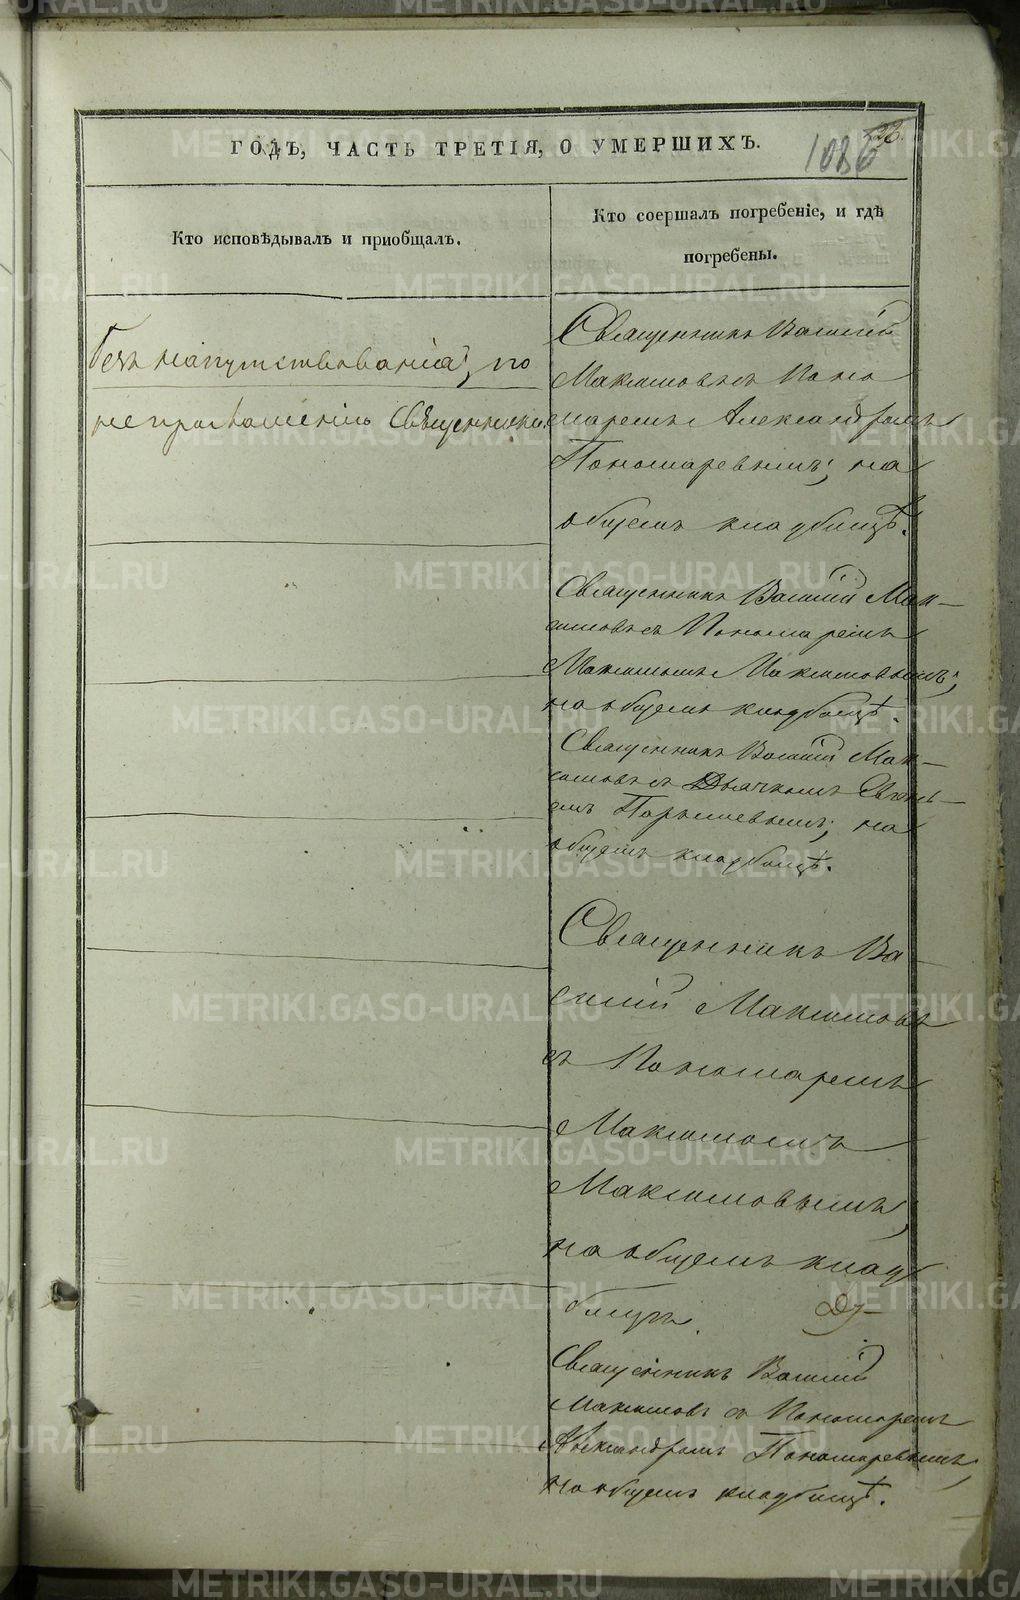 ГОДЪ, ЧАСТЬ ТРЕТІЯ, О УМЕРШИХЪ.
1086
Кто исповѣдывалъ и приобщалъ.
Кто соершалъ погребеніе, и гдѣ
погребены.
безъ напутствованія, по
не приглашенію Священника
Священникъ Василій
Максимовъ съ Поно
маремъ Александромъ
Пономаревымъ; на
общемъ кладбищѣ.
Священникъ Василій Мак-
симовъ съ Пономаремъ
Максимомъ Максимовымъ;
на общемъ кладбищѣ.
Священникъ Василій Мак-
симовъ съ Дьячкомъ
Порышевымъ; на
общемъ кладбищѣ.
Священникъ Ва-
силій Максимовъ
съ Пономаремъ
Максимомъ
Максимовымъ,
на общемъ клад
бищѣ.
Священникъ Василій
Максимовъ съ Пономаремъ
Александромъ Пономаревымъ,
на общемъ кладбищѣ.
METRIKI.GASO-URAL.RU